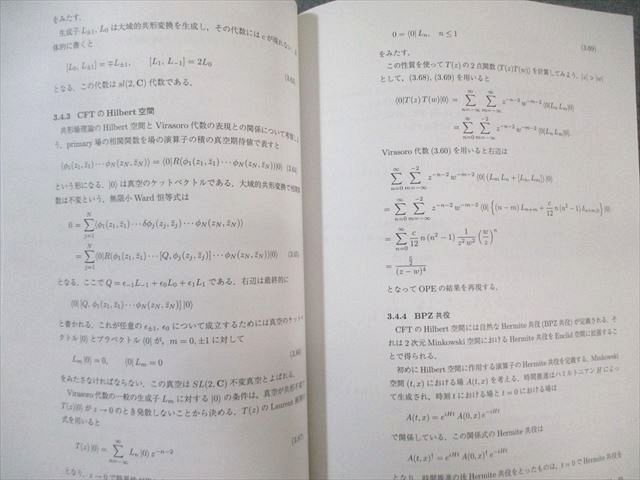 をみたす．
生成子 L±1, L0 は大域的共形変換を生成し，その代数には c が現れない．
体的に書くと
[L0, L±1] = ∓L±1, [L1, L−1] = 2L0
となる．この代数は sl(2, C) 代数である．
3.4.3 CFT の Hilbert 空間
共形場理論の Hilbert 空間と Virasoro 代数の表現との関係について考察し
う．primary 場の相関関数を場の演算子の積の真空期待値で表すと
⟨ϕ1(z1, z̄1) ··· ϕN(zN, z̄N)⟩ = ⟨0|R(ϕ1(z1, z̄1) ··· ϕN(zN, z̄N))|0⟩
という形になる．|0⟩ は真空のケットベクトルである．大域的共形変換で相関
数は不変という，無限小 Ward 恒等式は
0 = ∑_{j=1}^{N} ⟨ϕ1(z1, z̄1) ··· δϕj(zj, z̄j) ··· ϕN(zN, z̄N)⟩
= ∑_{j=1}^{N} ⟨0|R(ϕ1(z1, z̄1) ··· [Q, ϕj(zj, z̄j)] ··· ϕN(zN, z̄N))|0⟩
となる．ここで Q = ϵ−1L−1 + ϵ0L0 + ϵ1L1 である．右辺は最終的に
⟨0| [Q, ϕ1(z1, z̄1) ··· ϕN(zN, z̄N)] |0⟩
と書かれる．これが任意の ϵ±1, ϵ0 について成立するためには真空のケット
クトル |0⟩ とブラベクトル ⟨0| が，m = 0, ±1 に対して
Lm|0⟩ = 0, ⟨0|Lm = 0
をみたさなければならない．この真空は SL(2, C) 不変真空とよばれる．
Virasoro 代数の一般の生成子 Lm に対する |0⟩ の条件は，真空が共形
T(z)|0⟩ が z → 0 のとき発散しないことから決める．T(z) の Laurent
式を用いると
T(z)|0⟩ = ∑_{n=−∞}^{∞} Ln|0⟩ z^{−n−2}
となり，z → 0 で
0 = ⟨0| Ln, n ≤ 1 (3.69)
をみたす．
この性質を使って T(z) の 2 点関数 ⟨T(z)T(w)⟩ を計算してみよう．|z| > |w|
として，(3.68), (3.69) を用いると
⟨0|T(z)T(w)|0⟩ = ∑_{n=−∞}^{∞} ∑_{m=−∞}^{∞} z^{−n−2} w^{−m−2} ⟨0|LnLm|0⟩
= ∑_{n=0}^{∞} ∑_{m=−∞}^{−2} z^{−n−2} w^{−m−2} ⟨0|LnLm|0⟩
Virasoro 代数 (3.60) を用いると右辺は
∑_{n=0}^{∞} ∑_{m=−∞}^{−2} z^{−n−2} w^{−m−2} ⟨0| (LmLn + [Ln, Lm]) |0⟩
= ∑_{n=0}^{∞} ∑_{m=−∞}^{−2} z^{−n−2} w^{−m−2} ⟨0| {(n − m)Ln+m + c/12 n(n² − 1) δn+m,0} |0⟩
= ∑_{n=0}^{∞} c/12 n (n² − 1) 1/(z²w²) (w/z)^n
= (c/2)/(z − w)^4
となって OPE の結果を再現する．
3.4.4 BPZ 共役
CFT の Hilbert 空間には自然な Hermite 共役 (BPZ 共役) が定義される．そ
れは 2 次元 Minkowski 空間における Hermite 共役を Euclid 空間に拡張するこ
とで得られる．
初めに Hilbert 空間に作用する演算子の Hermite 共役を定義する．Minkowski
空間 (t, x) における場 A(t, x) を考える．時間推進はハミルトニアン H によっ
て生成され，時刻 t における場と t = 0 における場は
A(t, x) = e^{iHt} A(0, x) e^{−iHt}
で関係している．この関係式の Hermite 共役は
A(t, x)† = e^{iHt} A(0, x)† e^{−iHt}
となり，時間推進の後 Hermite 共役をとったものは，t = 0 で Hermite 共役